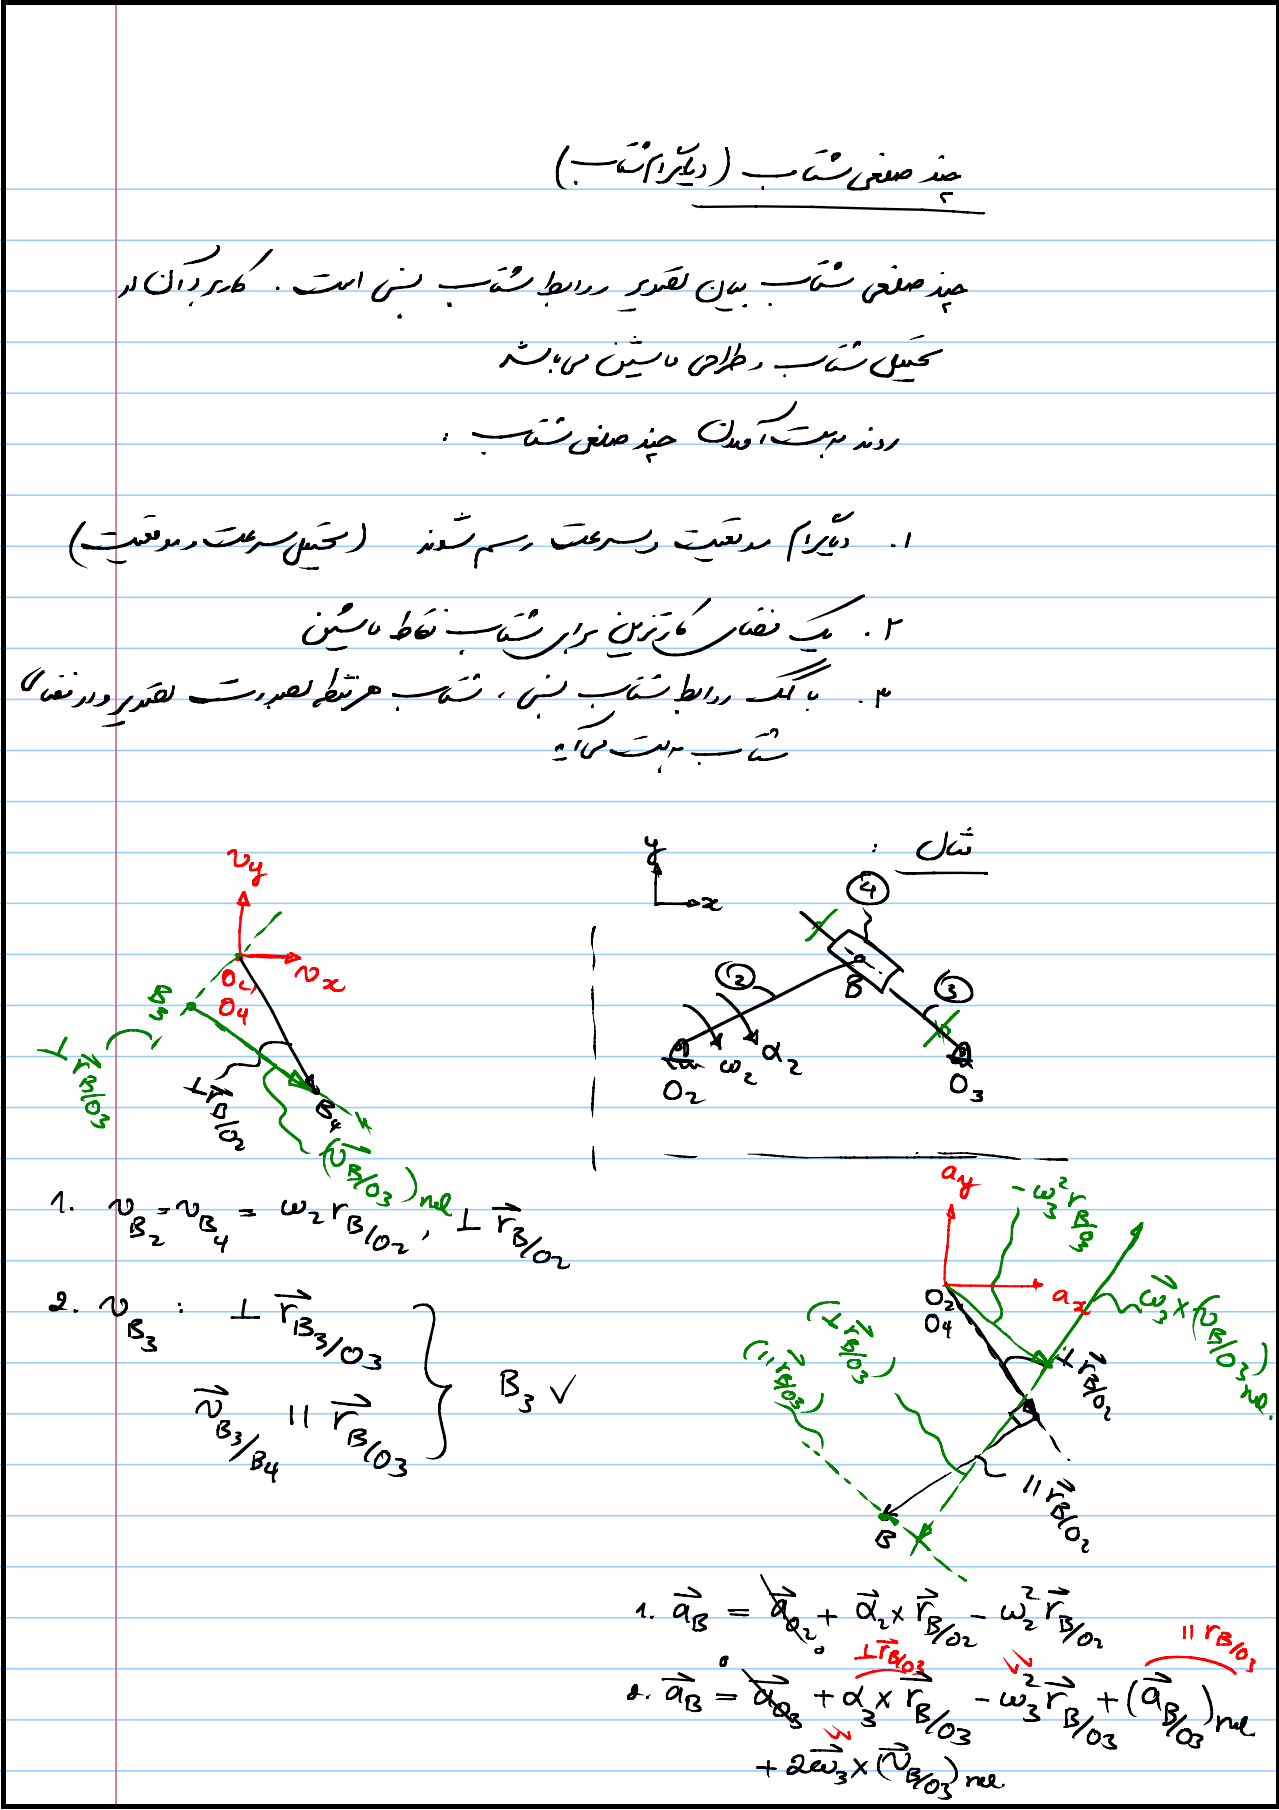 چند ضلعی شتاب (دیاگرام شتاب)
چند ضلعی شتاب بیان تصویر روابط شتاب نسبی است . کاربرد آن در
تحلیل شتاب و طراحی ماشین می باشد
روند بدست آمدن چند ضلعی شتاب :
۱. دیاگرام موقعیت و سرعت رسم شوند (تحلیل سرعت و موقعیت)
۲. یک فضای کارتزین برای شتاب نقاط ماشین
۳. با کمک روابط شتاب نسبی ، شتاب هر نقطه بصورت تصویر و در فضای
شتاب بدست می آید
مثال :
y
x
4
2
3
B
ω₂
α₂
O₂
O₃
v_y
v_x
O₂
O₄
B₃
⊥ r⃗_{B/O₃}
⊥ r⃗_{B/O₂}
B₄
(v⃗_{B/O₃})_{rel}
1. v_{B₂} = v_{B₄} = ω₂ r_{B/O₂} , ⊥ r⃗_{B/O₂}
2. v_{B₃} : ⊥ r⃗_{B₃/O₃}
v⃗_{B₃/B₄} || r⃗_{B/O₃}
B₃ ✓
a_y
a_x
-ω₃² r_{B/O₃}
ω⃗₃ × (v⃗_{B/O₃})_{rel.}
O₂
O₄
(⊥ r⃗_{B/O₃})
(|| r⃗_{B/O₃})
⊥ r⃗_{B/O₂}
|| r⃗_{B/O₂}
B
1. a⃗_B = a⃗_{O₂} + α⃗₂ × r⃗_{B/O₂} - ω₂² r⃗_{B/O₂}
0
⊥ r⃗_{B/O₃}
|| r_{B/O₃}
2. a⃗_B = a⃗_{O₃} + α₃ × r⃗_{B/O₃} - ω₃² r⃗_{B/O₃} + (a⃗_{B/O₃})_{rel}
0
+ 2ω⃗₃ × (v⃗_{B/O₃})_{rel}